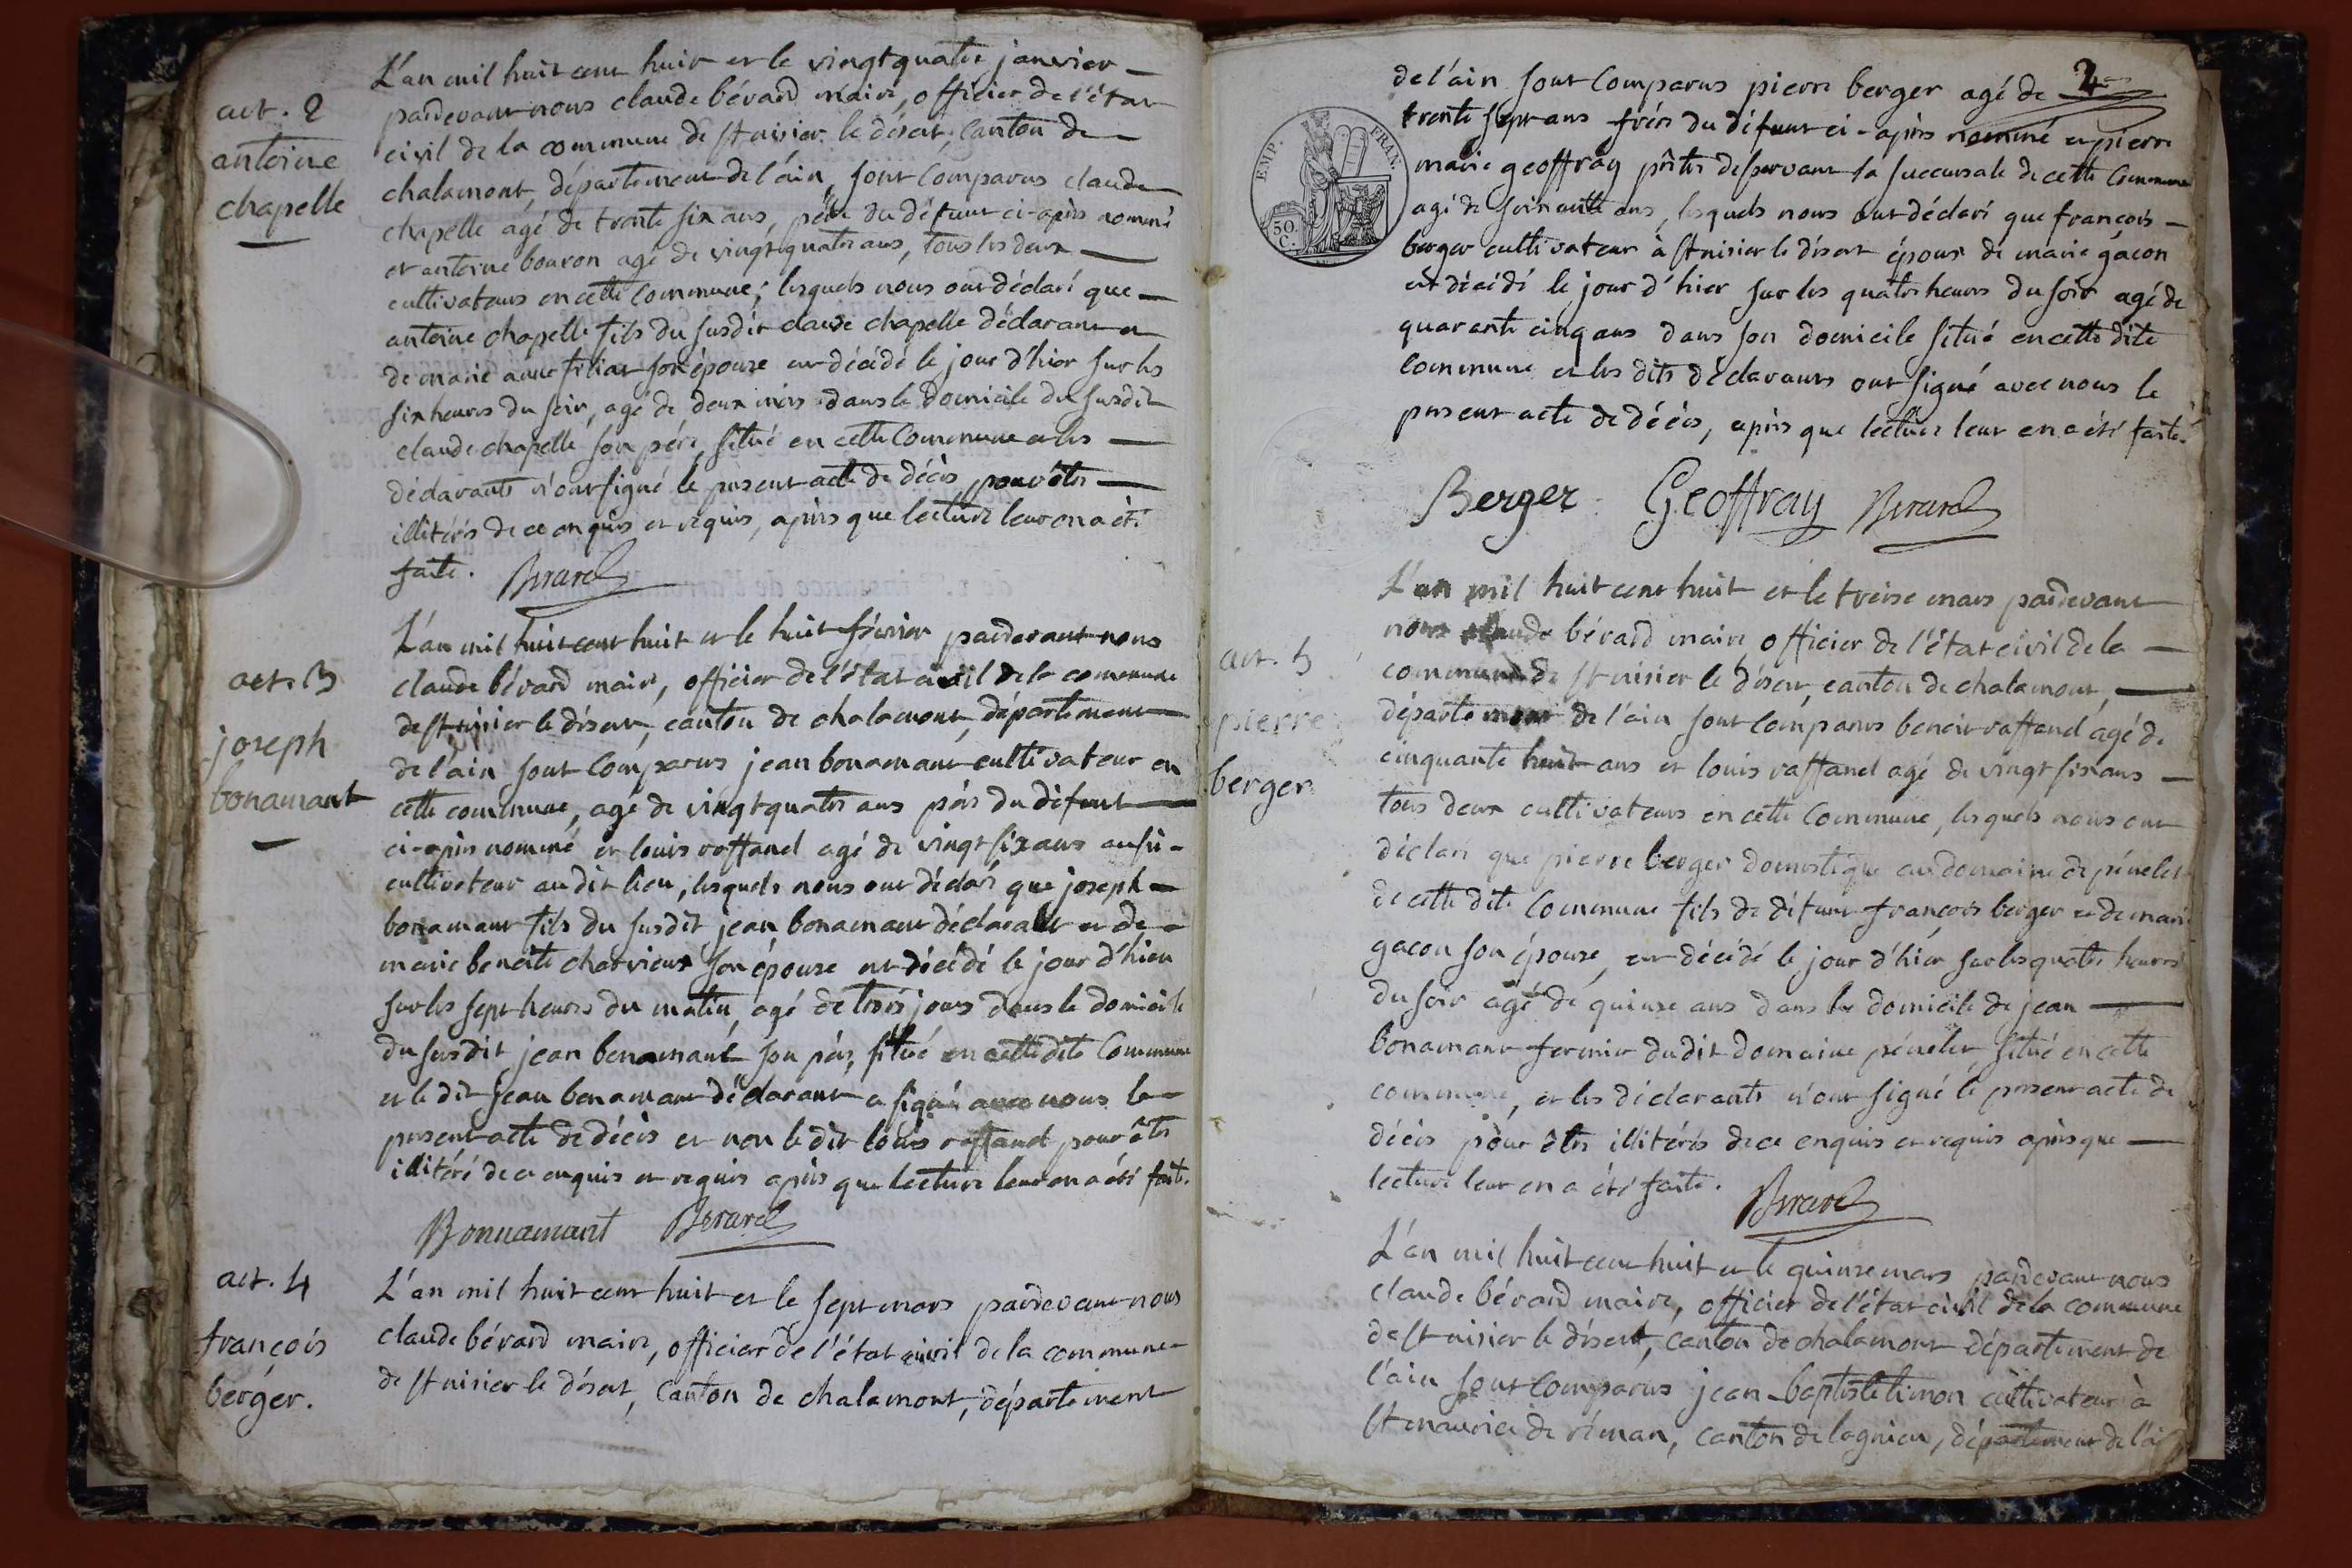 art. 2
antoine
chapelle
L'an mil huit cent huit et le vingt quatre janvier
pardevant nous claude bérard maire, officier de l'état
civil de la commune de st nisier le désert, canton de
chalamont, département de l'ain, sont comparus claude
chapelle agé de trente six ans, père du défunt ci-après nommé
et antoine bouvon agé de vingt quatre ans, tous les deux
cultivateurs en cette commune; lesquels nous ont déclaré que
antoine chapelle fils du susdit claude chapelle déclarant et
de marie anne filiat son épouse est décédé le jour d'hier sur les
six heures du soir, agé de deux mois dans le domicile du susdit
claude chapelle son père, situé en cette commune et les
déclarants n'ont signé le présent acte de décès pour être
illitérés de ce enquis et requis, après que lecture leur en a été
faite. Berard
act. 3
joseph
bonamant
L'an mil huit cent huit et le huit février pardevant nous
claude bérard maire, officier de l'état civil de la commune
de st nisier le désert, canton de chalamont, département
de l'ain sont comparus jean bonamant cultivateur en
cette commune, agé de vingt quatre ans père du défunt
ci-après nommé et louis raffand agé de vingt six ans aussi
cultivateur au dit lieu, lesquels nous ont déclaré que joseph
bonamant fils du susdit jean bonamant déclarant et de
marie benoite charvieux son épouse est décédé le jour d'hier
sur les sept heures du matin, agé de trois jours dans le domicile
du susdit jean bonamant son père, situé en cette dite commune
et le dit jean bonamant déclarant a signé avec nous le
présent acte de décès et non le dit louis raffand pour être
illitéré de ce enquis et requis après que lecture leur en a été faite.
Bonnamant Berard
act. 4
françois
berger.
L'an mil huit cent huit et le sept mars pardevant nous
claude bérard maire, officier de l'état civil de la commune
de st nisier le désert, canton de chalamont, département
2
EMP. FRAN.
50. C.
de l'ain sont comparus pierre berger agé de
trente sept ans frère du défunt ci-après nommé et pierre
marie geoffray prêtre desservant la succursale de cette commune
agé de soixante ans, lesquels nous ont déclaré que françois
berger cultivateur à st nisier le désert époux de marie gacon
est décédé le jour d'hier sur les quatre heures du soir agé de
quarante cinq ans dans son domicile situé en cette dite
commune et les dits déclarants ont signé avec nous le
présent acte de décès, après que lecture leur en a été faite.
Berger Geoffray Berard
act. 5
pierre
berger
L'an mil huit cent huit et le treise mars pardevant
nous claude bérard maire officier de l'état civil de la
commune de st nisier le désert, canton de chalamont,
département de l'ain sont comparus benoit raffand agé de
cinquante huit ans et louis raffand agé de vingt six ans
tous deux cultivateurs en cette commune, lesquels nous ont
déclaré que pierre berger domestique au domaine de péneler
de cette dite commune fils de défunt françois berger et de marie
gacon son épouse, est décédé le jour d'hier sur les quatre heures
du soir agé de quinse ans dans le domicile de jean
bonamant fermier du dit domaine péneler situé en cette
commune, et les déclarants n'ont signé le présent acte de
décès pour être illitérés de ce enquis et requis après que
lecture leur en a été faite. Berard
L'an mil huit cent huit et le quinse mars pardevant nous
claude bérard maire, officier de l'état civil de la commune
de st nisier le désert, canton de chalamont département de
l'ain sont comparus jean baptiste limon cultivateur à
st maurice de réman, canton de lagnieu, département de l'ai